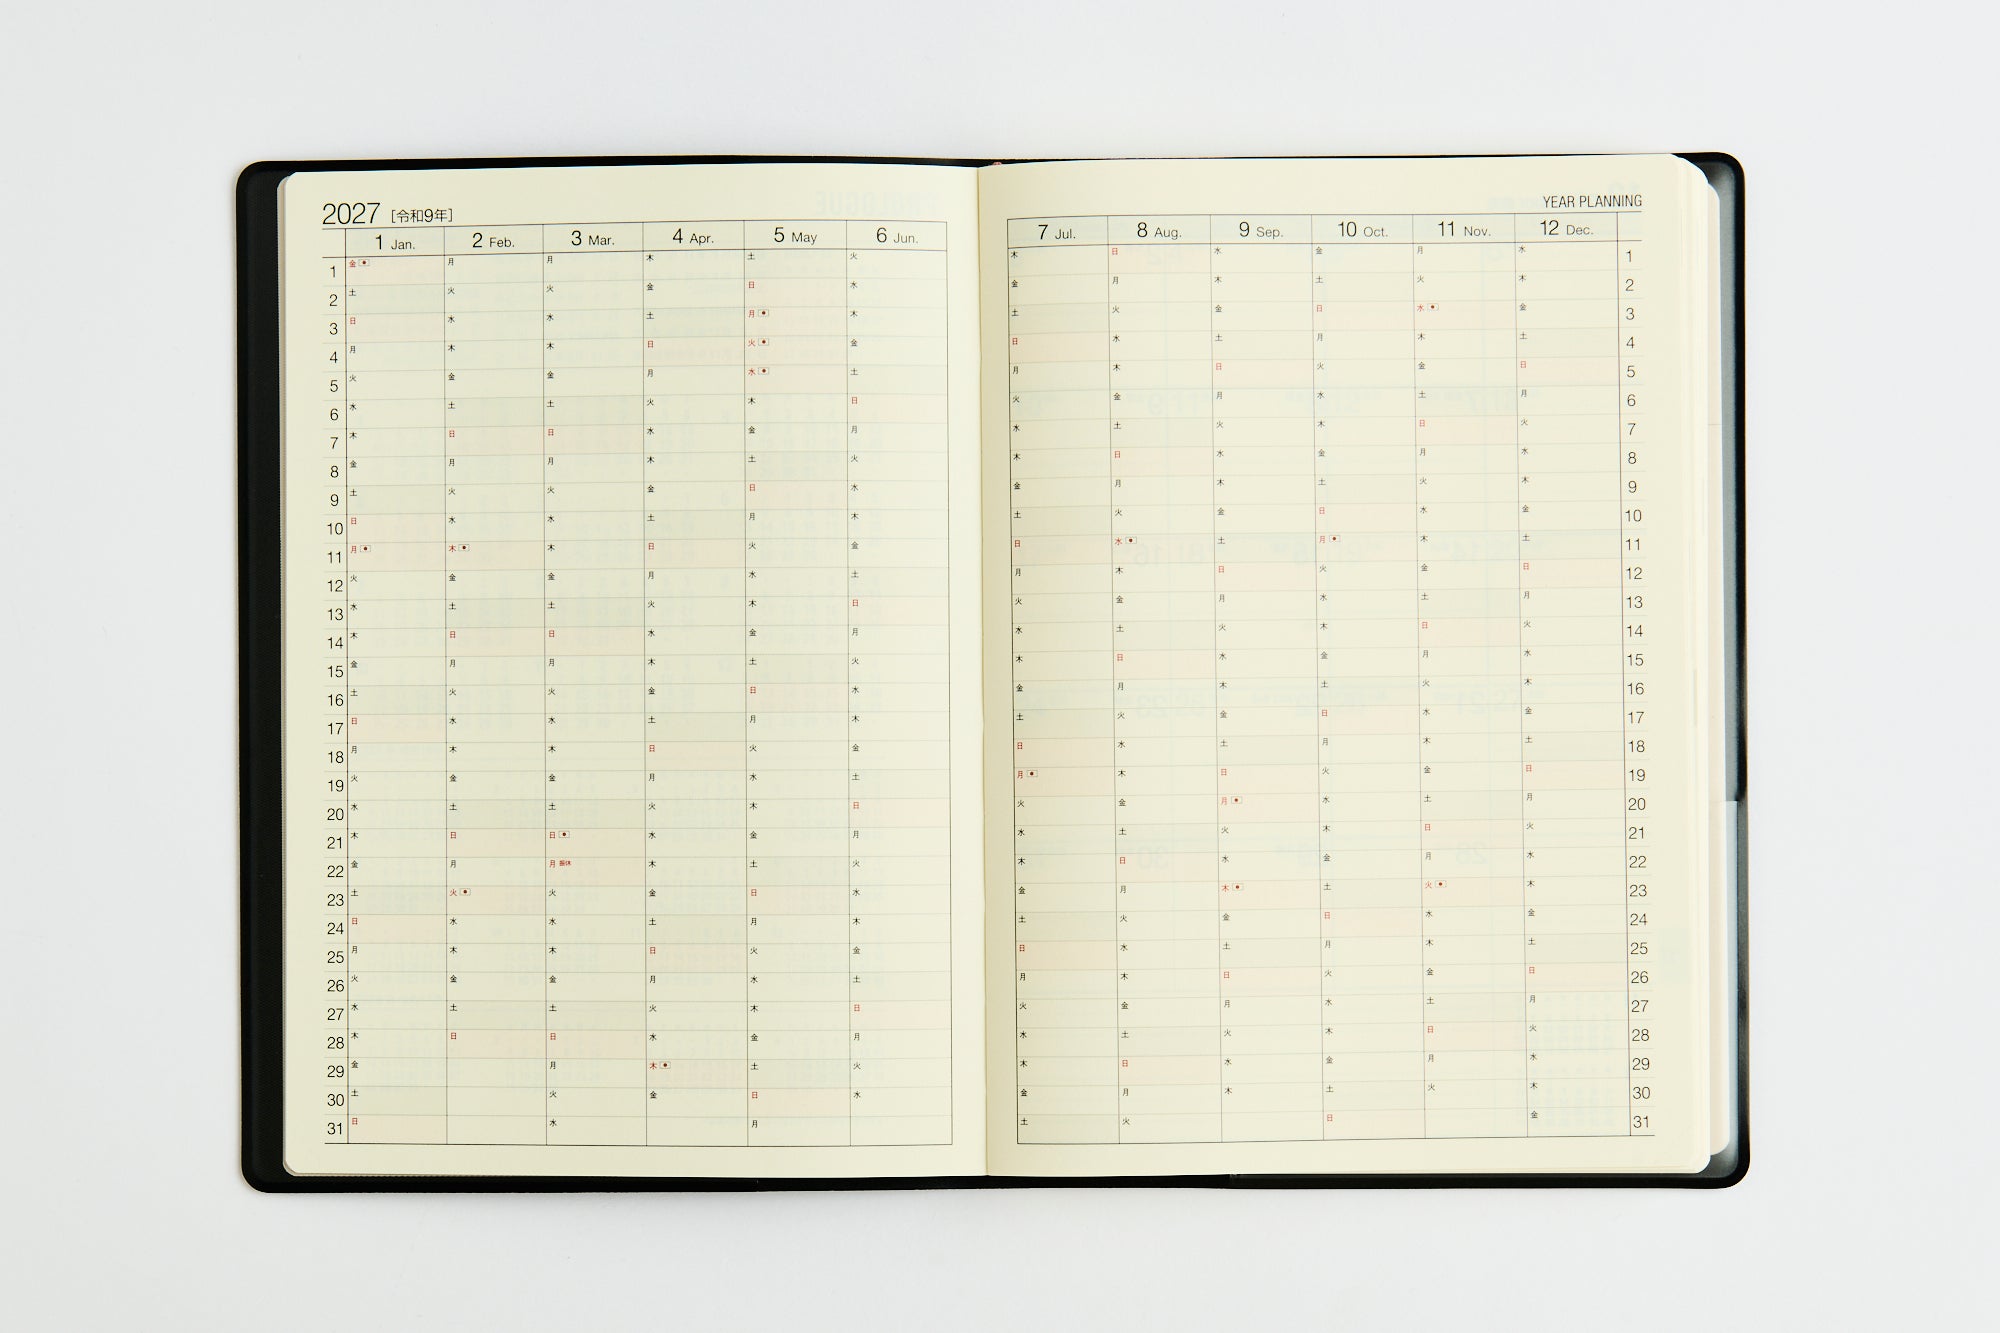 2027 [令和9年]
1 Jan. 2 Feb. 3 Mar. 4 Apr. 5 May 6 Jun.
1 金 月 月 木 土 火
2 土 火 火 金 日 水
3 日 水 水 土 月 木
4 月 木 木 日 火 金
5 火 金 金 月 水 土
6 水 土 土 火 木 日
7 木 日 日 水 金 月
8 金 月 月 木 土 火
9 土 火 火 金 日 水
10 日 水 水 土 月 木
11 月 木 木 日 火 金
12 火 金 金 月 水 土
13 水 土 土 火 木 日
14 木 日 日 水 金 月
15 金 月 月 木 土 火
16 土 火 火 金 日 水
17 日 水 水 土 月 木
18 月 木 木 日 火 金
19 火 金 金 月 水 土
20 水 土 土 火 木 日
21 木 日 日 水 金 月
22 金 月 月 振休 木 土 火
23 土 火 火 金 日 水
24 日 水 水 土 月 木
25 月 木 木 日 火 金
26 火 金 金 月 水 土
27 水 土 土 火 木 日
28 木 日 日 水 金 月
29 金 月 木 土 火
30 土 火 金 日 水
31 日 水 月
YEAR PLANNING
7 Jul. 8 Aug. 9 Sep. 10 Oct. 11 Nov. 12 Dec.
木 日 水 金 月 水 1
金 月 木 土 火 木 2
土 火 金 日 水 金 3
日 水 土 月 木 土 4
月 木 日 火 金 日 5
火 金 月 水 土 月 6
水 土 火 木 日 火 7
木 日 水 金 月 水 8
金 月 木 土 火 木 9
土 火 金 日 水 金 10
日 水 土 月 木 土 11
月 木 日 火 金 日 12
火 金 月 水 土 月 13
水 土 火 木 日 火 14
木 日 水 金 月 水 15
金 月 木 土 火 木 16
土 火 金 日 水 金 17
日 水 土 月 木 土 18
月 木 日 火 金 日 19
火 金 月 水 土 月 20
水 土 火 木 日 火 21
木 日 水 金 月 水 22
金 月 木 土 火 木 23
土 火 金 日 水 金 24
日 水 土 月 木 土 25
月 木 日 火 金 日 26
火 金 月 水 土 月 27
水 土 火 木 日 火 28
木 日 水 金 月 水 29
金 月 木 土 火 木 30
土 火 日 金 31